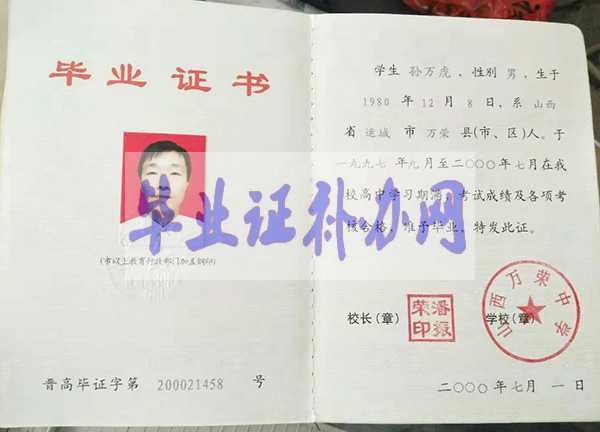 毕业证书
(市以上教育行政部门加盖钢印)
晋高毕证字第 200021458 号
毕业证补办网
学生 孙万虎，性别 男，生于
1980 年 12 月 8 日，系 山西
省 运城 市 万荣 县(市、区)人。于
一九九七 年九月至二〇〇〇年七月在我
校高中学习期满，考试成绩及各项考
核合格，准予毕业，特发此证。
校长(章)
潘振荣印
学校(章)
山西万荣中学
二〇〇〇年七月一日